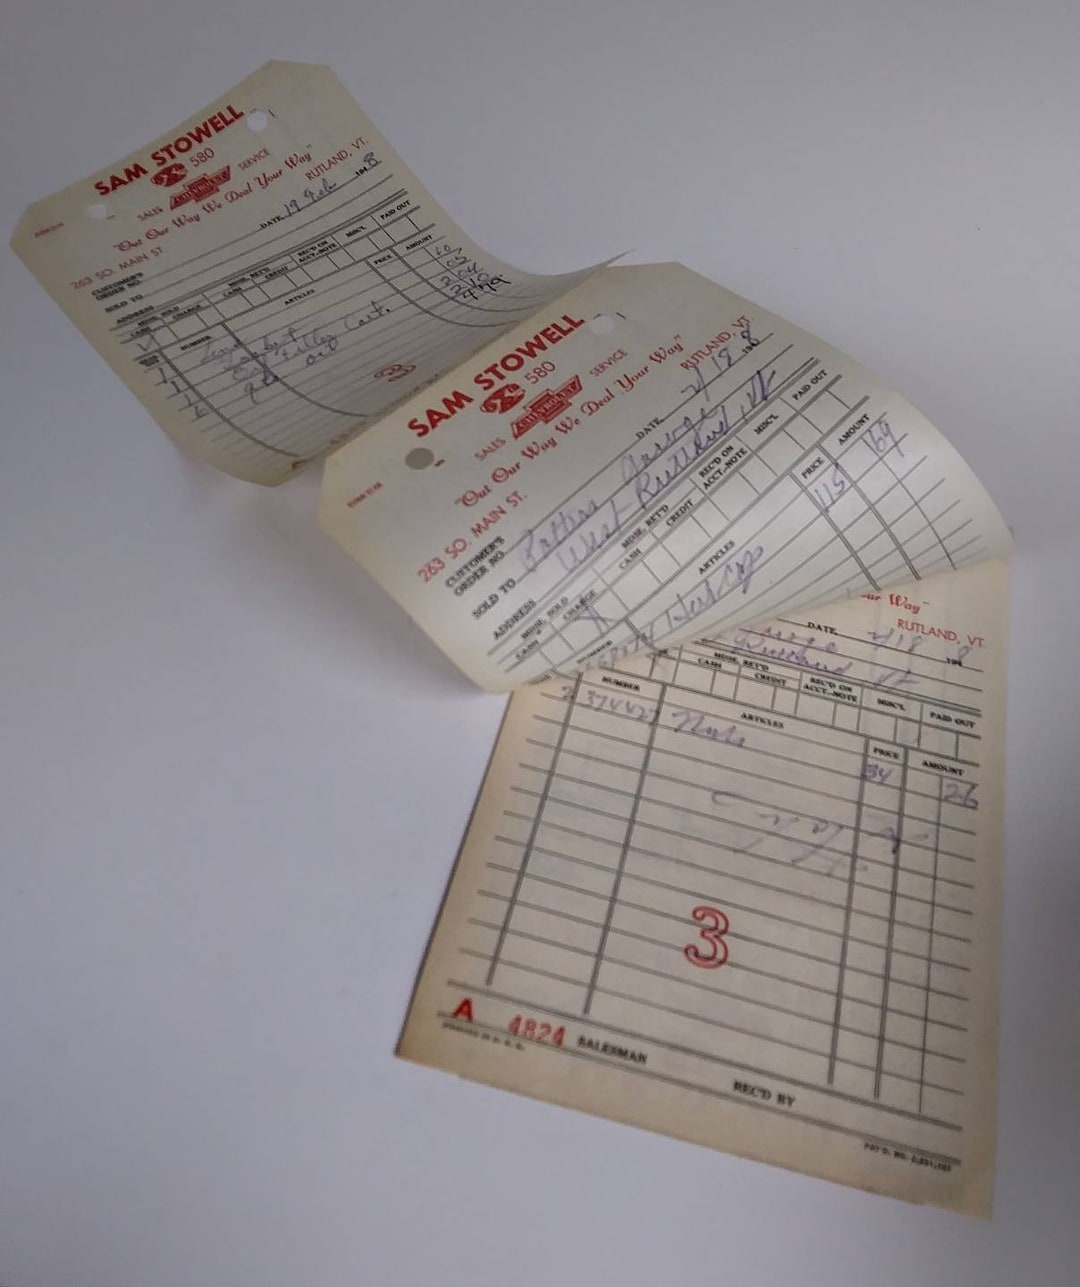 SAM STOWELL
580
SALES CHEVROLET SERVICE
"Out Our Way We Deal Your Way"
263 SO. MAIN ST. RUTLAND, VT.
DATE 19 Feb 1948
CUSTOMER'S ORDER NO.
SOLD TO
ADDRESS
MDSE. SOLD MDSE. RET'D REC'D ON ACCT.-NOTE MISC'L PAID OUT
CASH CHARGE CASH CREDIT
NUMBER ARTICLES PRICE AMOUNT
1 60
1 Gasket 05
1 Filter Cart. 204
oil 210
479
3
SAM STOWELL
580
SALES CHEVROLET SERVICE
"Out Our Way We Deal Your Way"
263 SO. MAIN ST. RUTLAND, VT.
DATE 2/19 1948
CUSTOMER'S ORDER NO.
SOLD TO Garage
ADDRESS West Rutland, Vt
MDSE. SOLD MDSE. RET'D REC'D ON ACCT.-NOTE MISC'L PAID OUT
CASH CHARGE CASH CREDIT
NUMBER ARTICLES PRICE AMOUNT
Hub Cap 115 69
our Way"
RUTLAND, VT.
DATE 2/18 1948
Rutland Vt
MDSE. RET'D REC'D ON ACCT.-NOTE MISC'L PAID OUT
CASH CREDIT
NUMBER ARTICLES PRICE AMOUNT
2 374427 34 26
3
A 4824 SALESMAN
REC'D BY